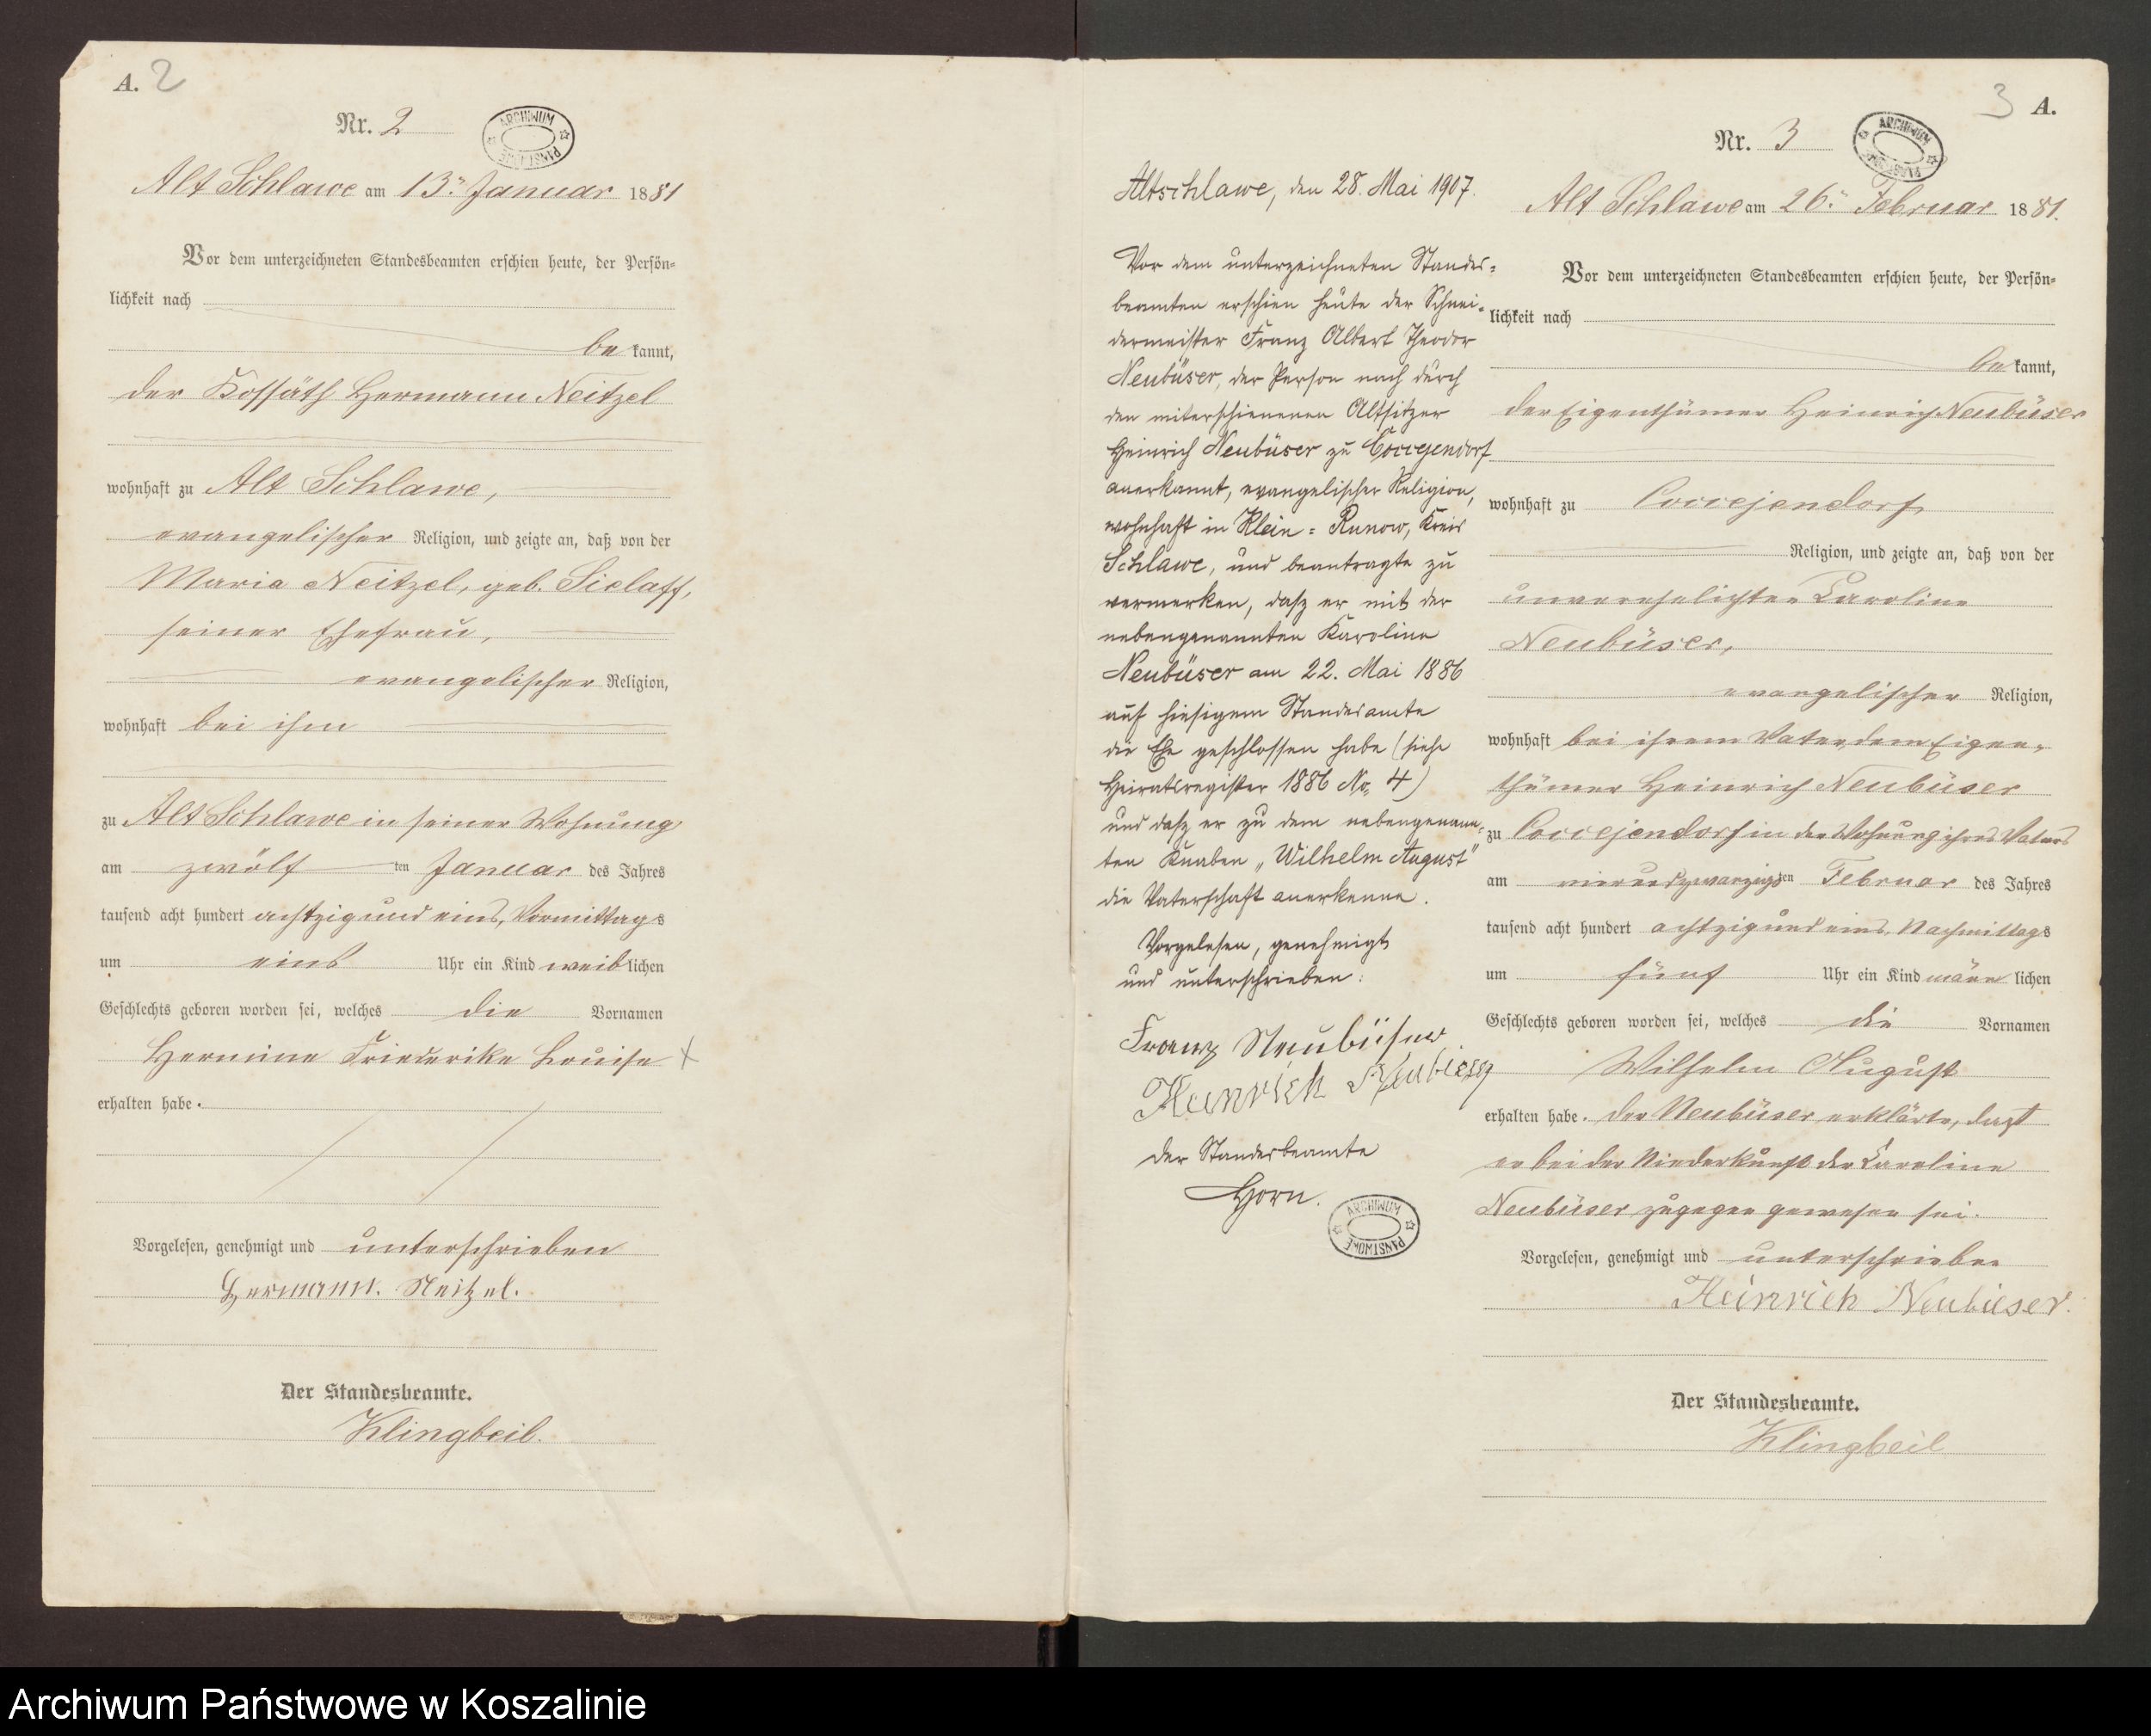 A. 2
Nr. 2
ARCHIWUM PAŃSTWOWE
Alt Schlawe am 13ⁿ Januar 1881
Vor dem unterzeichneten Standesbeamten erschien heute, der Persön=
lichkeit nach
be kannt,
der Kossäth Hermann Neitzel
wohnhaft zu Alt Schlawe,
evangelischer Religion, und zeigte an, daß von der
Maria Neitzel, geb. Sielaff,
seiner Ehefrau,
evangelischer Religion,
wohnhaft bei ihm
zu Alt Schlawe in seiner Wohnung
am zwölf ten Januar des Jahres
tausend acht hundert achtzig und eins, Vormittags
um eins Uhr ein Kind weib lichen
Geschlechts geboren worden sei, welches die Vornamen
Hermine Friederike Louise
erhalten habe.
Vorgelesen, genehmigt und unterschrieben
Hermann. Neitzel.
Der Standesbeamte.
Klingbeil.
Altschlawe, den 28. Mai 1907.
Vor dem unterzeichneten Standes=
beamten erschien heute der Schnei=
dermeister Franz Albert Theodor
Neubüser, der Person nach durch
den miterschienenen Altsitzer
Heinrich Neubüser zu Coccejendorf
anerkannt, evangelischer Religion,
wohnhaft in Klein=Runow, Kreis
Schlawe, und beantragte zu
vermerken, daß er mit der
nebengenannten Karoline
Neubüser am 22. Mai 1886
auf hiesigem Standesamte
die Ehe geschlossen habe (siehe
Heiratsregister 1886 No. 4)
und daß er zu dem nebengenann=
ten Knaben „Wilhelm August"
die Vaterschaft anerkenne.
Vorgelesen, genehmigt
und unterschrieben:
Franz Neubüser
Heinrich Neubieser
Der Standesbeamte
Horn.
ARCHIWUM PAŃSTWOWE
3 A.
Nr. 3
ARCHIWUM PAŃSTWOWE
Alt Schlawe am 26ⁿ Februar 1881.
Vor dem unterzeichneten Standesbeamten erschien heute, der Persön=
lichkeit nach
be kannt,
der Eigenthümer Heinrich Neubüser
wohnhaft zu Coccejendorf
Religion, und zeigte an, daß von der
unverehelichten Caroline
Neubüser,
evangelischer Religion,
wohnhaft bei ihrem Vater, dem Eigen=
thümer Heinrich Neubüser
zu Coccejendorf in der Wohnung ihres Vaters
am vierundzwanzigsten Februar des Jahres
tausend acht hundert achtzig und eins, Nachmittags
um fünf Uhr ein Kind männ lichen
Geschlechts geboren worden sei, welches die Vornamen
Wilhelm August
erhalten habe. Der Neubüser erklärte, daß
er bei der Niederkunft der Caroline
Neubüser zugegen gewesen sei.
Vorgelesen, genehmigt und unterschrieben
Heinrich Neubieser.
Der Standesbeamte.
Klingbeil
Archiwum Państwowe w Koszalinie